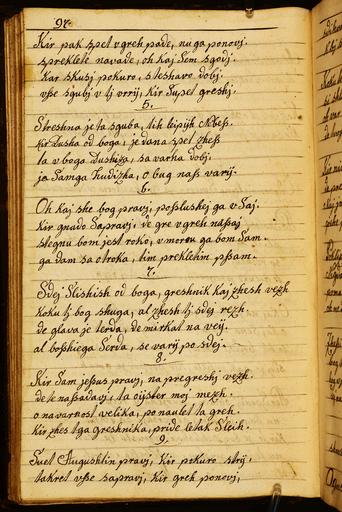 97.
Kir pak spet vgreh pade, nu ga ponovj.
spreklete navade, oh kaj Sem sgodj.
Kar skusj pokuro, steshavo dobj.
vse sgubj v tj vrrij, Kir Supet greshj.
5.
Streshna je ta sguba, tih lepijh
Kir Dusha od boga, je dana spet
la v boga Dushiza, sa varha dobj.
je Samga Hudizha, o bug nass varij.
6.
Oh kaj she bog pravj, posluskej ga v Saj.
Kir gnado Sapravj, ve gre v greh nasaj
stegnu bom jest roko, v moruu ga bom Sam.
ga dam sa otroka, tim prekletim pssam.
7.
Sdej Slishish od boga, greshnik kaj zhesh vezh
Koku tj bog shuga, al zhesh tj sdej rezh
de glava je terda, de mirkat na veij.
al boshiega Serda, se varij po sdej.
8.
Kir Sam jesus pravj, na pregreshj vezh.
dele nassadavj, ta oijster moj mezh.
o navarnost velika, po naulet ta greh.
Kir zhes tga greshnika, pride letak Sleih.
9.
Suet Augushtin pravj, Kir pokuro strij,
takret vse sapravj, Kir greh ponovj,